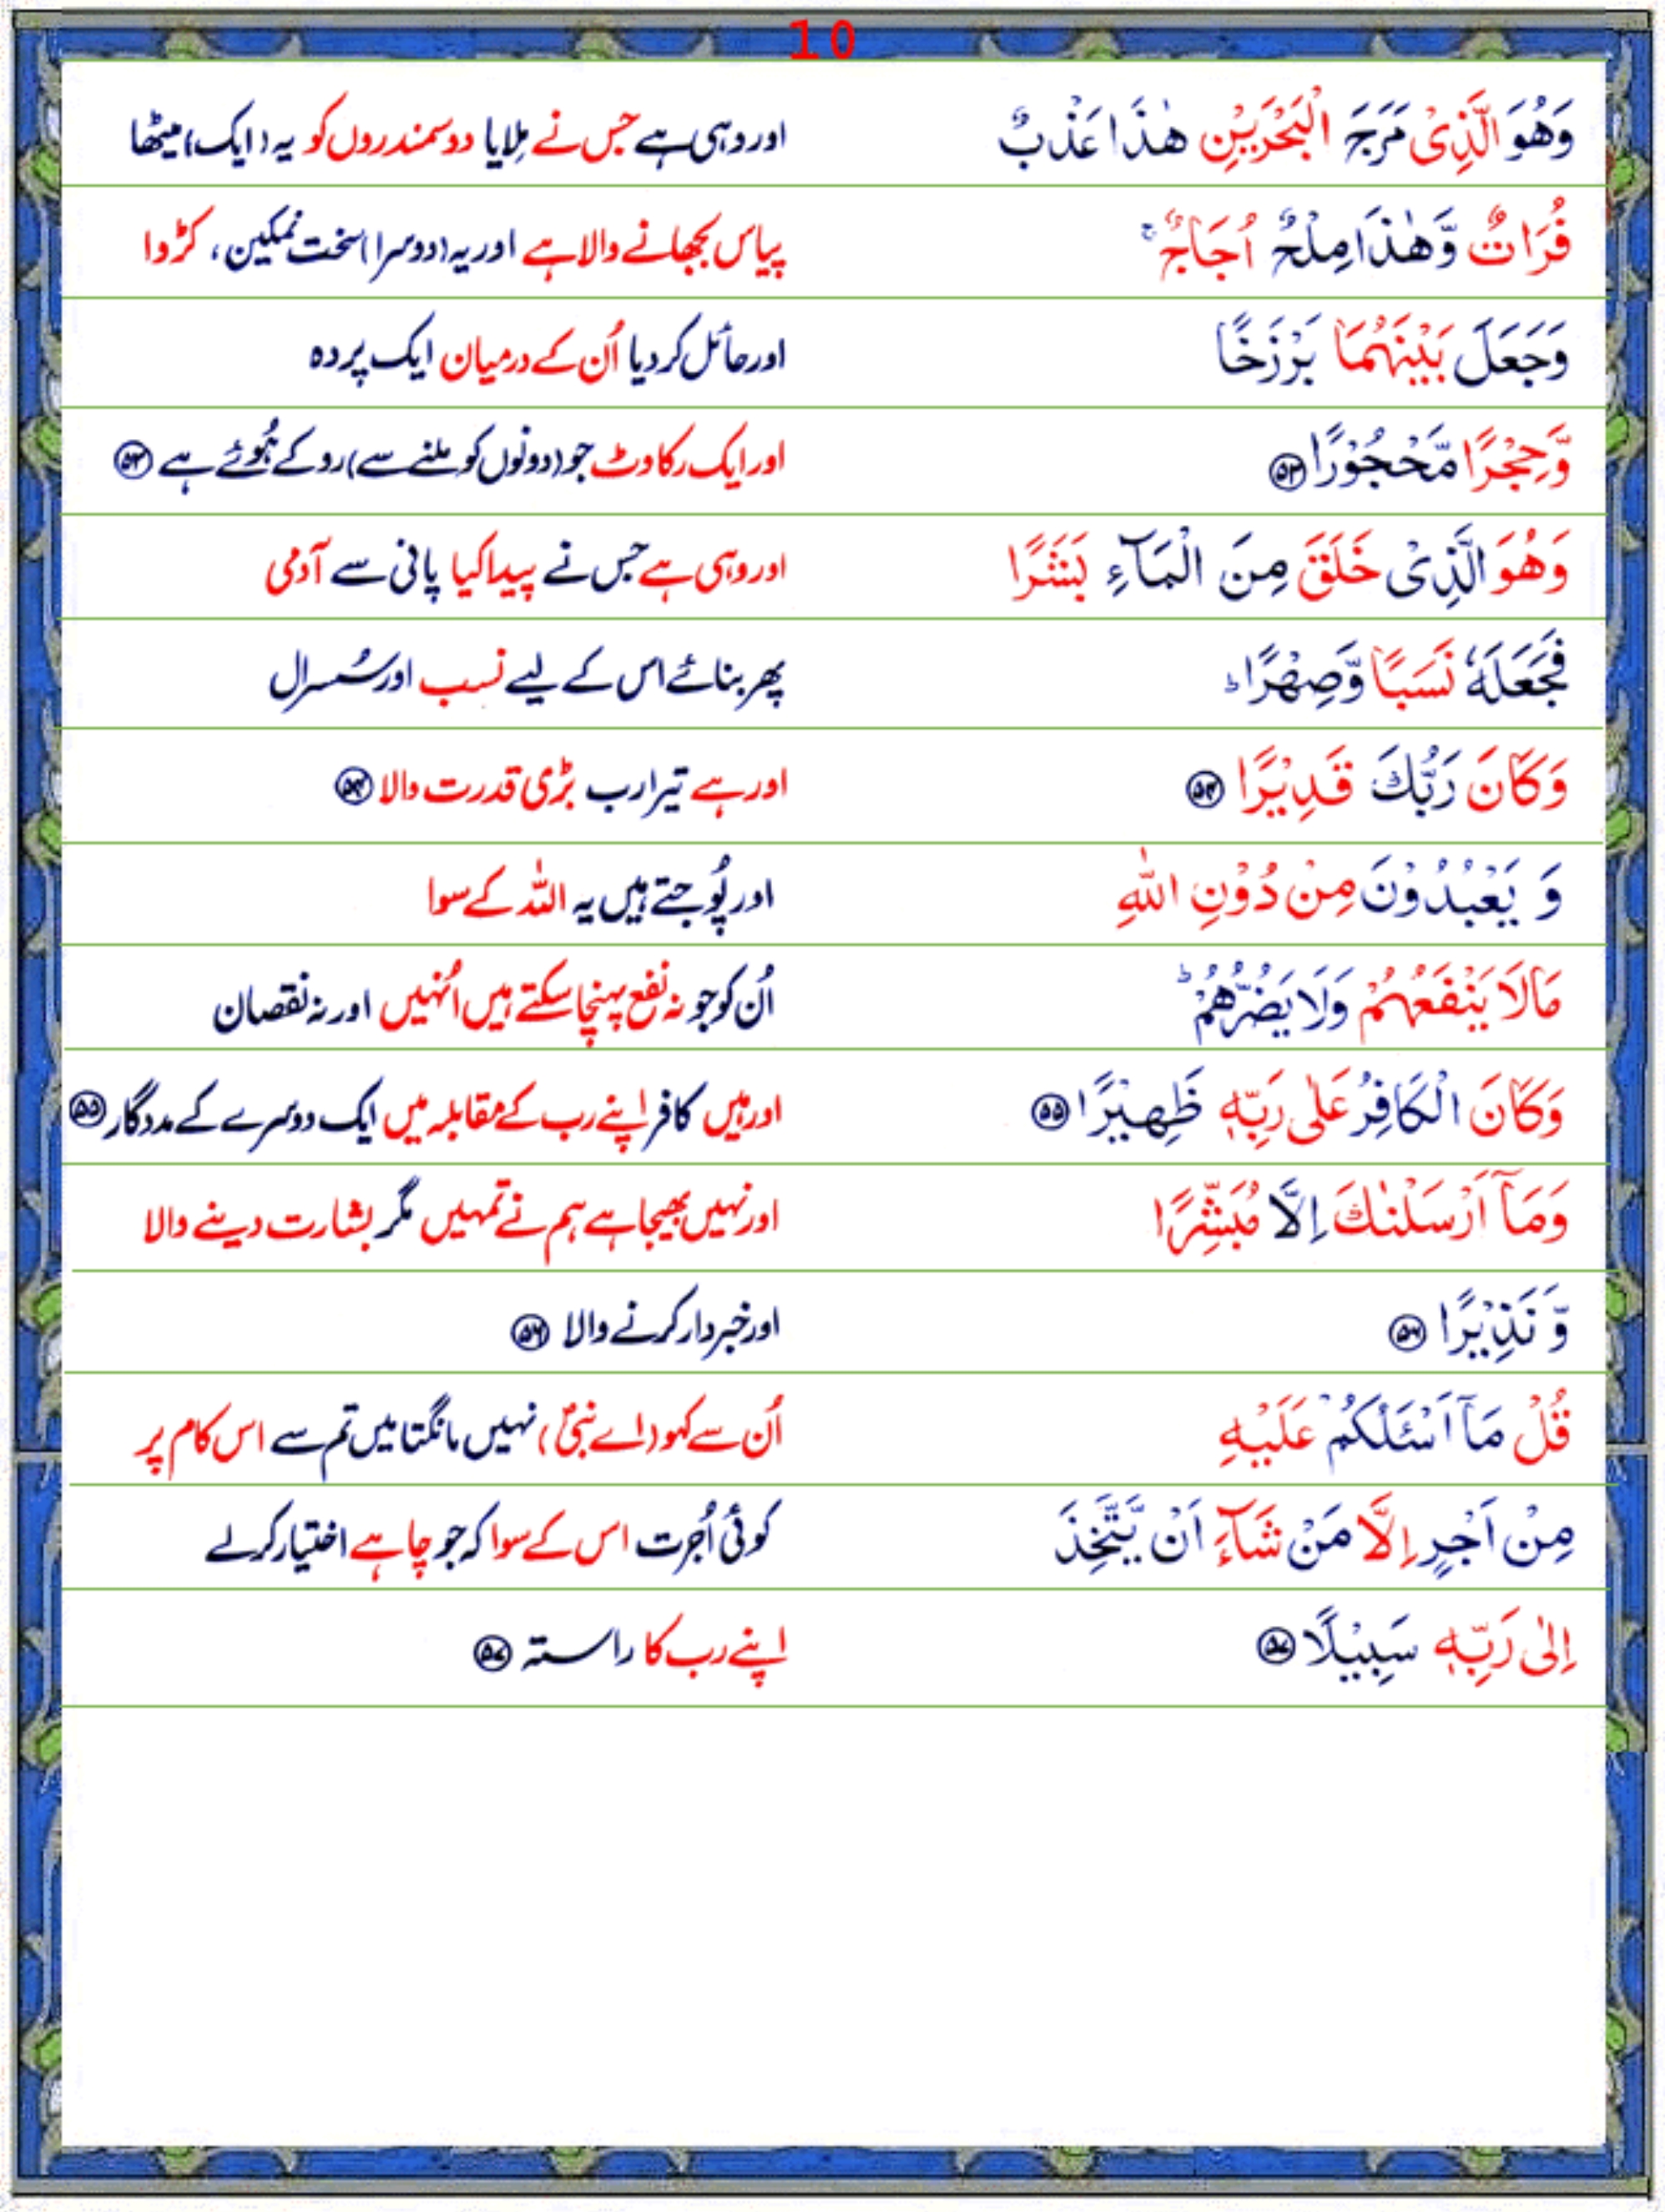 10
وَهُوَ الَّذِیْ مَرَجَ الْبَحْرَیْنِ هٰذَا عَذْبٌ اور وہی ہے جس نے مِلایا دو سمندروں کو یہ (ایک) میٹھا
فُرَاتٌ وَّهٰذَا مِلْحٌ اُجَاجٌ ۚ پیاس بجھانے والا ہے اور یہ (دوسرا) سخت نمکین، کڑوا
وَجَعَلَ بَیْنَهُمَا بَرْزَخًا اور حائل کر دیا اُن کے درمیان ایک پردہ
وَّحِجْرًا مَّحْجُوْرًا ۵۳ اور ایک رکاوٹ جو (دونوں کو ملنے سے) روکے ہُوئے ہے ۵۳
وَهُوَ الَّذِیْ خَلَقَ مِنَ الْمَآءِ بَشَرًا اور وہی ہے جس نے پیدا کیا پانی سے آدمی
فَجَعَلَهٗ نَسَبًا وَّصِهْرًا ؕ پھر بنائے اس کے لیے نسب اور سُسرال
وَكَانَ رَبُّكَ قَدِیْرًا ۵۴ اور ہے تیرا رب بڑی قدرت والا ۵۴
وَ یَعْبُدُوْنَ مِنْ دُوْنِ اللّٰهِ اور پُوجتے ہیں یہ اللہ کے سوا
مَالَا یَنْفَعُهُمْ وَلَا یَضُرُّهُمْ ؕ اُن کو جو نہ نفع پہنچا سکتے ہیں اُنہیں اور نہ نقصان
وَكَانَ الْكَافِرُ عَلٰی رَبِّهٖ ظَهِیْرًا ۵۵ اور ہیں کافر اپنے رب کے مقابلہ میں ایک دوسرے کے مددگار ۵۵
وَمَآ اَرْسَلْنٰكَ اِلَّا مُبَشِّرًا اور نہیں بھیجا ہے ہم نے تمہیں مگر بشارت دینے والا
وَّ نَذِیْرًا ۵۶ اور خبردار کرنے والا ۵۶
قُلْ مَآ اَسْئَلُكُمْ عَلَیْهِ اُن سے کہو (اے نبیؐ) نہیں مانگتا میں تم سے اس کام پر
مِنْ اَجْرٍ اِلَّا مَنْ شَآءَ اَنْ یَّتَّخِذَ کوئی اُجرت اس کے سوا کہ جو چاہے اختیار کر لے
اِلٰی رَبِّهٖ سَبِیْلًا ۵۷ اپنے رب کا راستہ ۵۷